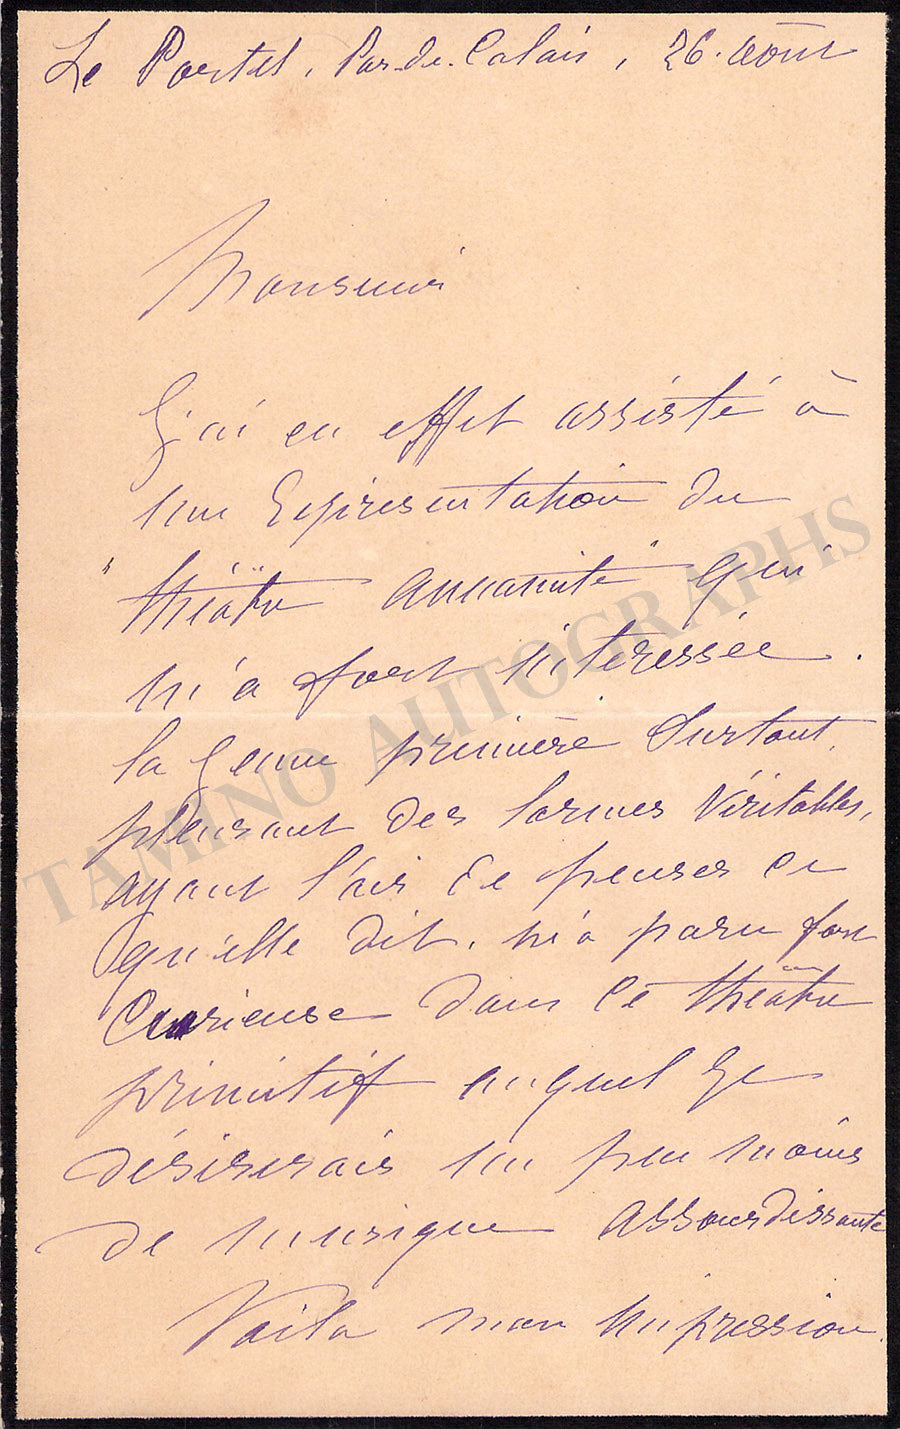 Le Portel, Pas-de-Calais, 26 août
Monsieur
J'ai en effet assisté à
une Représentation du
"théâtre annamite" qui
m'a fort intéressée.
la jeune première surtout,
pleurant des larmes véritables,
ayant l'air de penser ce
qu'elle dit, m'a paru fort
curieuse dans ce théâtre
primitif auquel je
désirerais un peu moins
de musique assourdissante
Voila mon impression.
TAMINO AUTOGRAPHS